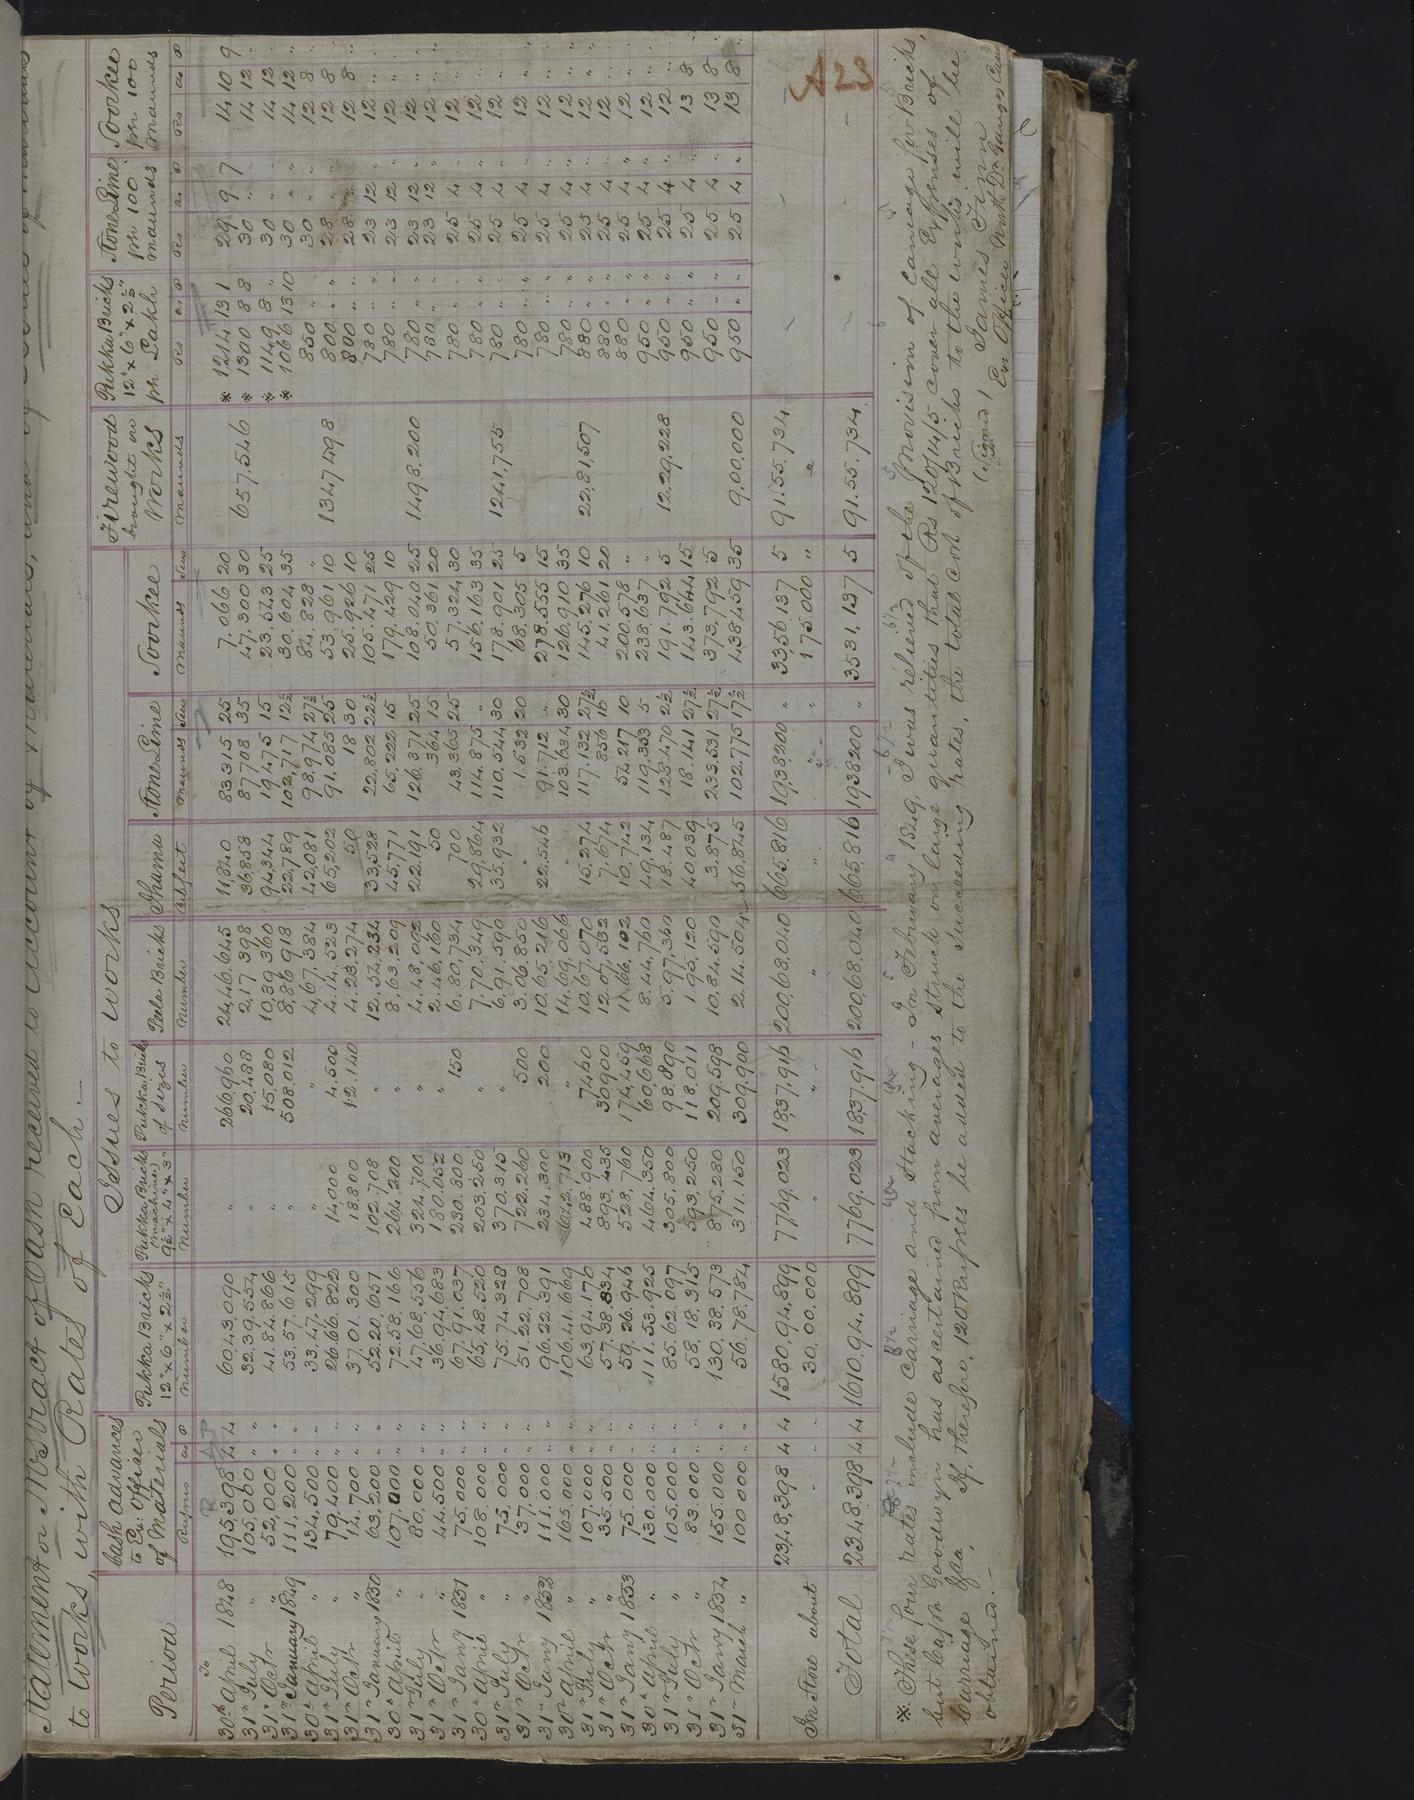 Statement or Abstract of Cash received to account of Materials, and of
to Works, with Rates of Each.—
Period | Cash advances to Ex. Officer of Materials | Issues to Works | Firewood brought on Works | Pukka Bricks 12" x 6" x 2½" pr Lakh | Stone Lime pr 100 maunds | Soorkee pr 100 maunds
Pukka Bricks 12" x 6" x 2½" | Pukka Brick (Machine) 9½" x 4" x 3" | Pukka Bricks of sizes | Peela Bricks | Ghuma | Stone Lime | Soorkee
Rupees as P | Number | Number | Number | Number | Cubfeet | Maunds Seers | Maunds Seers | Maunds | Rs as P | Rs as P | Rs as P
To
30th April 1848 | 195,398 4 4 | 60,43,090 | " | 266,960 | 24,46,645 | 11,840 | 83,315 25 | 7,066 20 | | * 1214 13 1 | 29 9 7 | 14 10 9
31st July " | 105,000 " " | 32,39,554 | " | 20,488 | 2,17,398 | 36,858 | 87708 35 | 47,300 30 | 657,546 | * 1300 8 8 | 30 " " | 14 12 "
31st Octr " | 52,000 " " | 41,84,866 | " | 15,080 | 10,39,360 | 94,344 | 19,475 15 | 23,543 25 | | * 1149 8 " | 30 " " | 14 12 "
31st January 1849 | 111,200 " " | 53,57,615 | " | 508,012 | 8,86,918 | 22,789 | 102,717 12½ | 30,604 35 | | * 1066 13 10 | 30 " " | 14 12 "
30th April " | 134,500 " " | 33,47,299 | " | " | 4,67,384 | 42,081 | 98,974 27½ | 84,828 " | | 850 " " | 30 " " | 12 8 "
31st July " | 79,400 " " | 26,66,822 | 14,000 | 4,500 | 4,14,523 | 65,202 | 91,085 25 | 53,961 10 | 1347,498 | 800 " " | 28 " " | 12 8 "
31st Octr " | 14,700 " " | 37,01,300 | 18,800 | 12,140 | 4,23,274 | 50 | 18 30 | 25,926 10 | | 800 " " | 28 " " | 12 8 "
31st January 1850 | 63,200 " " | 52,20,657 | 102,708 | " | 12,54,234 | 33,528 | 22,802 22½ | 105,471 25 | | 780 " " | 23 12 " | 12 " "
30th April " | 107,000 " " | 72,58,166 | 264,200 | " | 8,63,209 | 45,771 | 65,222 15 | 179,429 10 | | 780 " " | 23 12 " | 12 " "
31st July " | 80,000 " " | 47,68,556 | 324,700 | " | 4,48,002 | 22,191 | 126,371 25 | 108,040 25 | 1498,200 | 780 " " | 23 12 " | 12 " "
31st Octr " | 44,500 " " | 36,94,683 | 180,052 | " | 2,46,160 | 50 | 364 15 | 50,361 20 | | 780 " " | 23 12 " | 12 " "
31st Jany 1851 | 75,000 " " | 67,91,037 | 230,800 | 150 | 6,80,734 | 700 | 43,365 25 | 57,324 30 | | 780 " " | 25 4 " | 12 " "
30th April " | 108,000 " " | 65,48,520 | 203,250 | " | 7,70,349 | 29,864 | 114,875 " | 156,163 35 | | 780 " " | 25 4 " | 12 " "
31st July " | 75,000 " " | 75,74,328 | 370,315 | " | 6,91,590 | 35,932 | 110,544 30 | 178,901 25 | 1241,755 | 780 " " | 25 4 " | 12 " "
31st Octr " | 37,000 " " | 51,22,708 | 722,260 | 500 | 3,06,850 | " | 1,532 20 | 68,305 5 | | 780 " " | 25 4 " | 12 " "
31st Jany 1852 | 111,000 " " | 96,22,391 | 234,300 | 200 | 10,65,216 | 22,546 | 91,712 " | 278,555 15 | | 780 " " | 25 4 " | 12 " "
30th April " | 165,000 " " | 106,41,669 | 642,713 | " | 14,69,066 | " | 103,634 30 | 126,910 35 | | 780 " " | 25 4 " | 12 " "
31st July " | 107,000 " " | 63,94,176 | 488,905 | 7460 | 10,67,070 | 15,274 | 117,132 27½ | 145,276 10 | 22,81,507 | 880 " " | 25 4 " | 12 " "
31st Octr " | 35,500 " " | 57,38,834 | 893,435 | 36900 | 12,07,532 | 7,674 | 856 16 | 41,261 20 | | 880 " " | 25 4 " | 12 " "
31st Jany 1853 | 75,000 " " | 59,26,946 | 528,760 | 174,459 | 11,66,102 | 10,742 | 54,217 10 | 200,578 " | | 880 " " | 25 4 " | 12 " "
30th April " | 130,000 " " | 111,53,925 | 464,350 | 60,668 | 8,44,760 | 49,134 | 119,353 5 | 238,637 " | | 950 " " | 25 4 " | 12 " "
31st July " | 105,000 " " | 85,62,097 | 305,800 | 98,890 | 5,97,360 | 18,487 | 128,470 2½ | 191,792 5 | 12,29,228 | 950 " " | 25 4 " | 12 " "
31st Octr " | 83,000 " " | 58,18,315 | 593,250 | 118,011 | 1,95,120 | 40,039 | 18,141 27½ | 143,644 15 | | 950 " " | 25 4 " | 13 8 "
31st Jany 1854 | 155,000 " " | 130,38,573 | 875,280 | 209,598 | 10,84,590 | 3,875 | 233,531 27½ | 373,792 5 | | 950 " " | 25 4 " | 13 8 "
31st March " | 100,000 " " | 56,78,784 | 311,150 | 309,900 | 2,14,504 | 56,845 | 102,775 17½ | 438,459 35 | 9,00,000 | 950 " " | 25 4 " | 13 8 "
23,48,398 4 4 | 1580,94,899 | 7769,023 | 1837,916 | 200,68,040 | 665,816 | 1938200 " | 33,56,137 5 | 91,55,734
In Store about " " " | 30,00,000 | " | " | " | " | " " | 175,000 " | "
Total 23,48,398 4 4 | 1610,94,899 | 7769,023 | 1837,916 | 200,68,040 | 665,816 | 1938200 " | 3531,137 5 | 91,55,734
A23
* These four rates include Carriage and Stacking – In February 1849, I was relieved of the Provision of Carriage for Bricks,
but Captn Goodwyn has ascertained from averages struck on large quantities that Rs 120/14/5 cover all Expenses of
Carriage &ca, If, therefore, 120 Rupees be added to the succeeding rates, the total cost of Bricks to the works will be
obtained.—
(Signed) James Finn
Ex Officer North Dn Ganges Canal